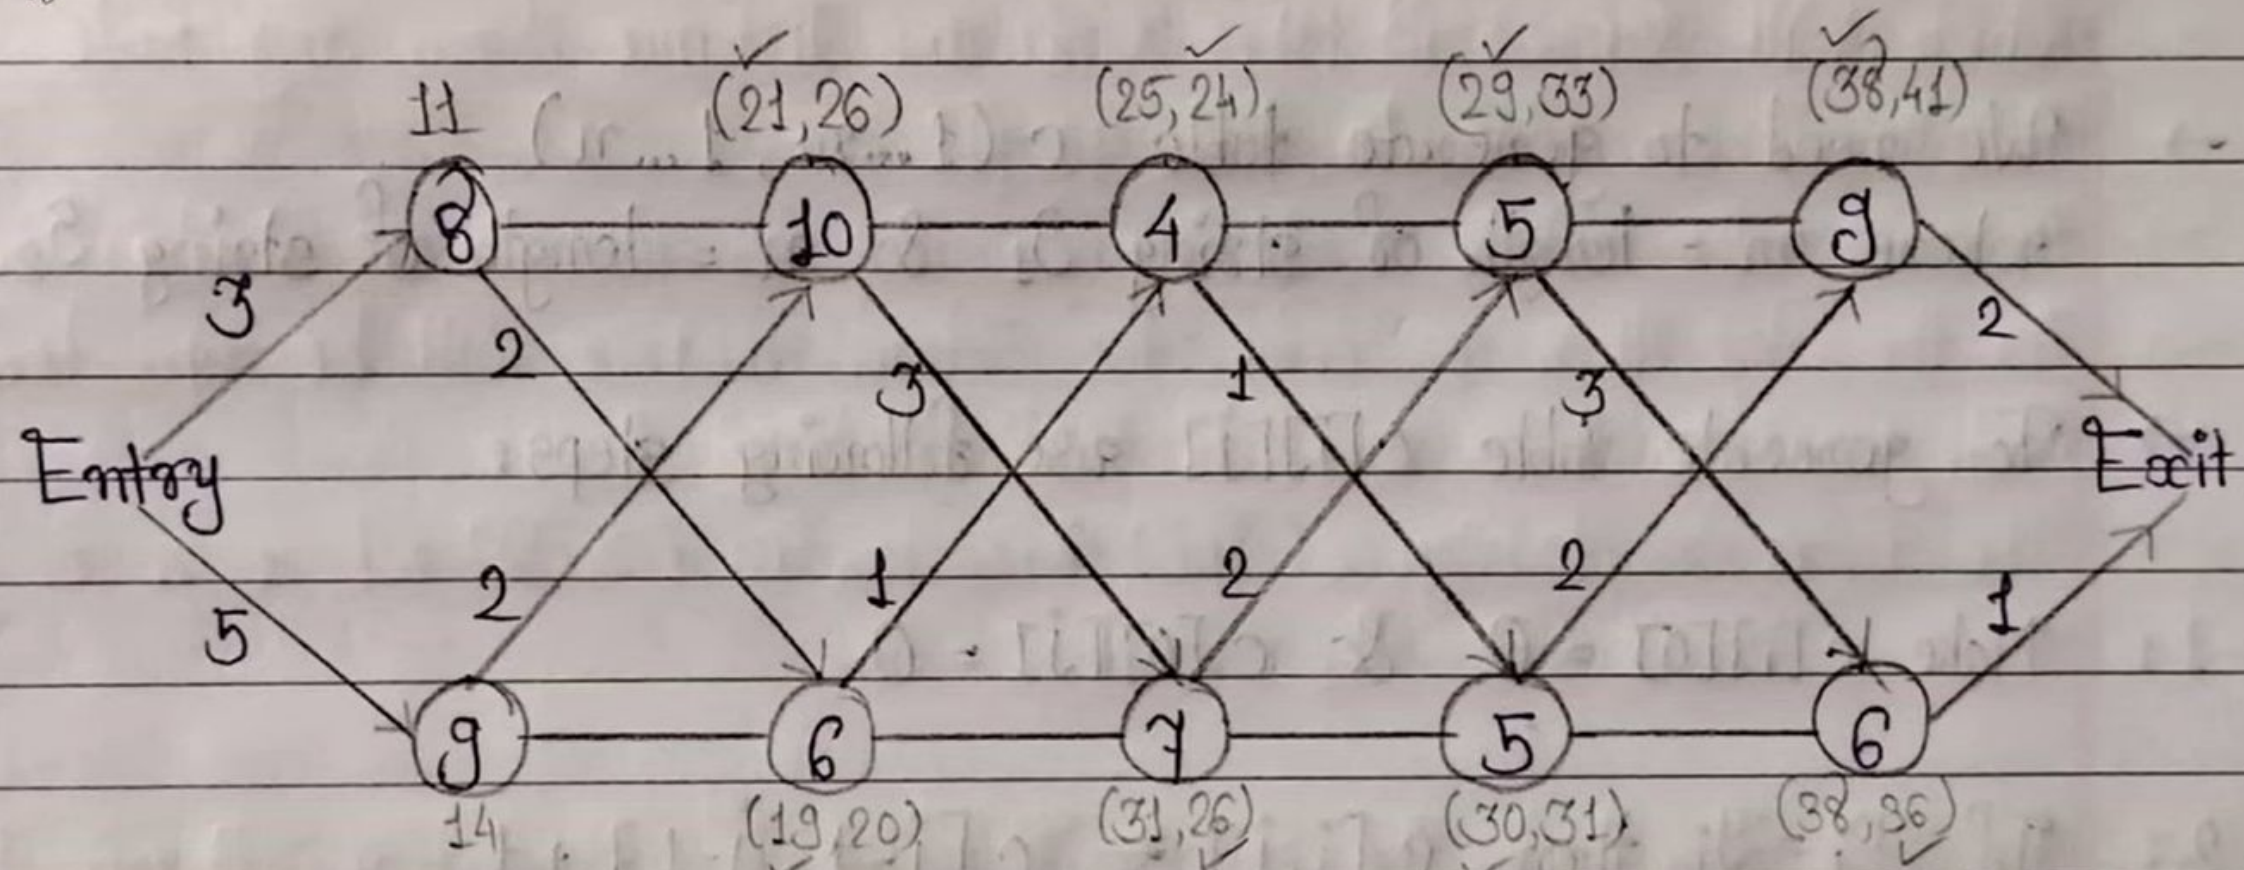 11 (21,26) (25,24) (29,33) (38,41)
8 10 4 5 9
3 2 3 1 3 2
Entry Exit
5 2 1 2 2 1
9 6 7 5 6
14 (19,20) (31,26) (30,31) (38,36)